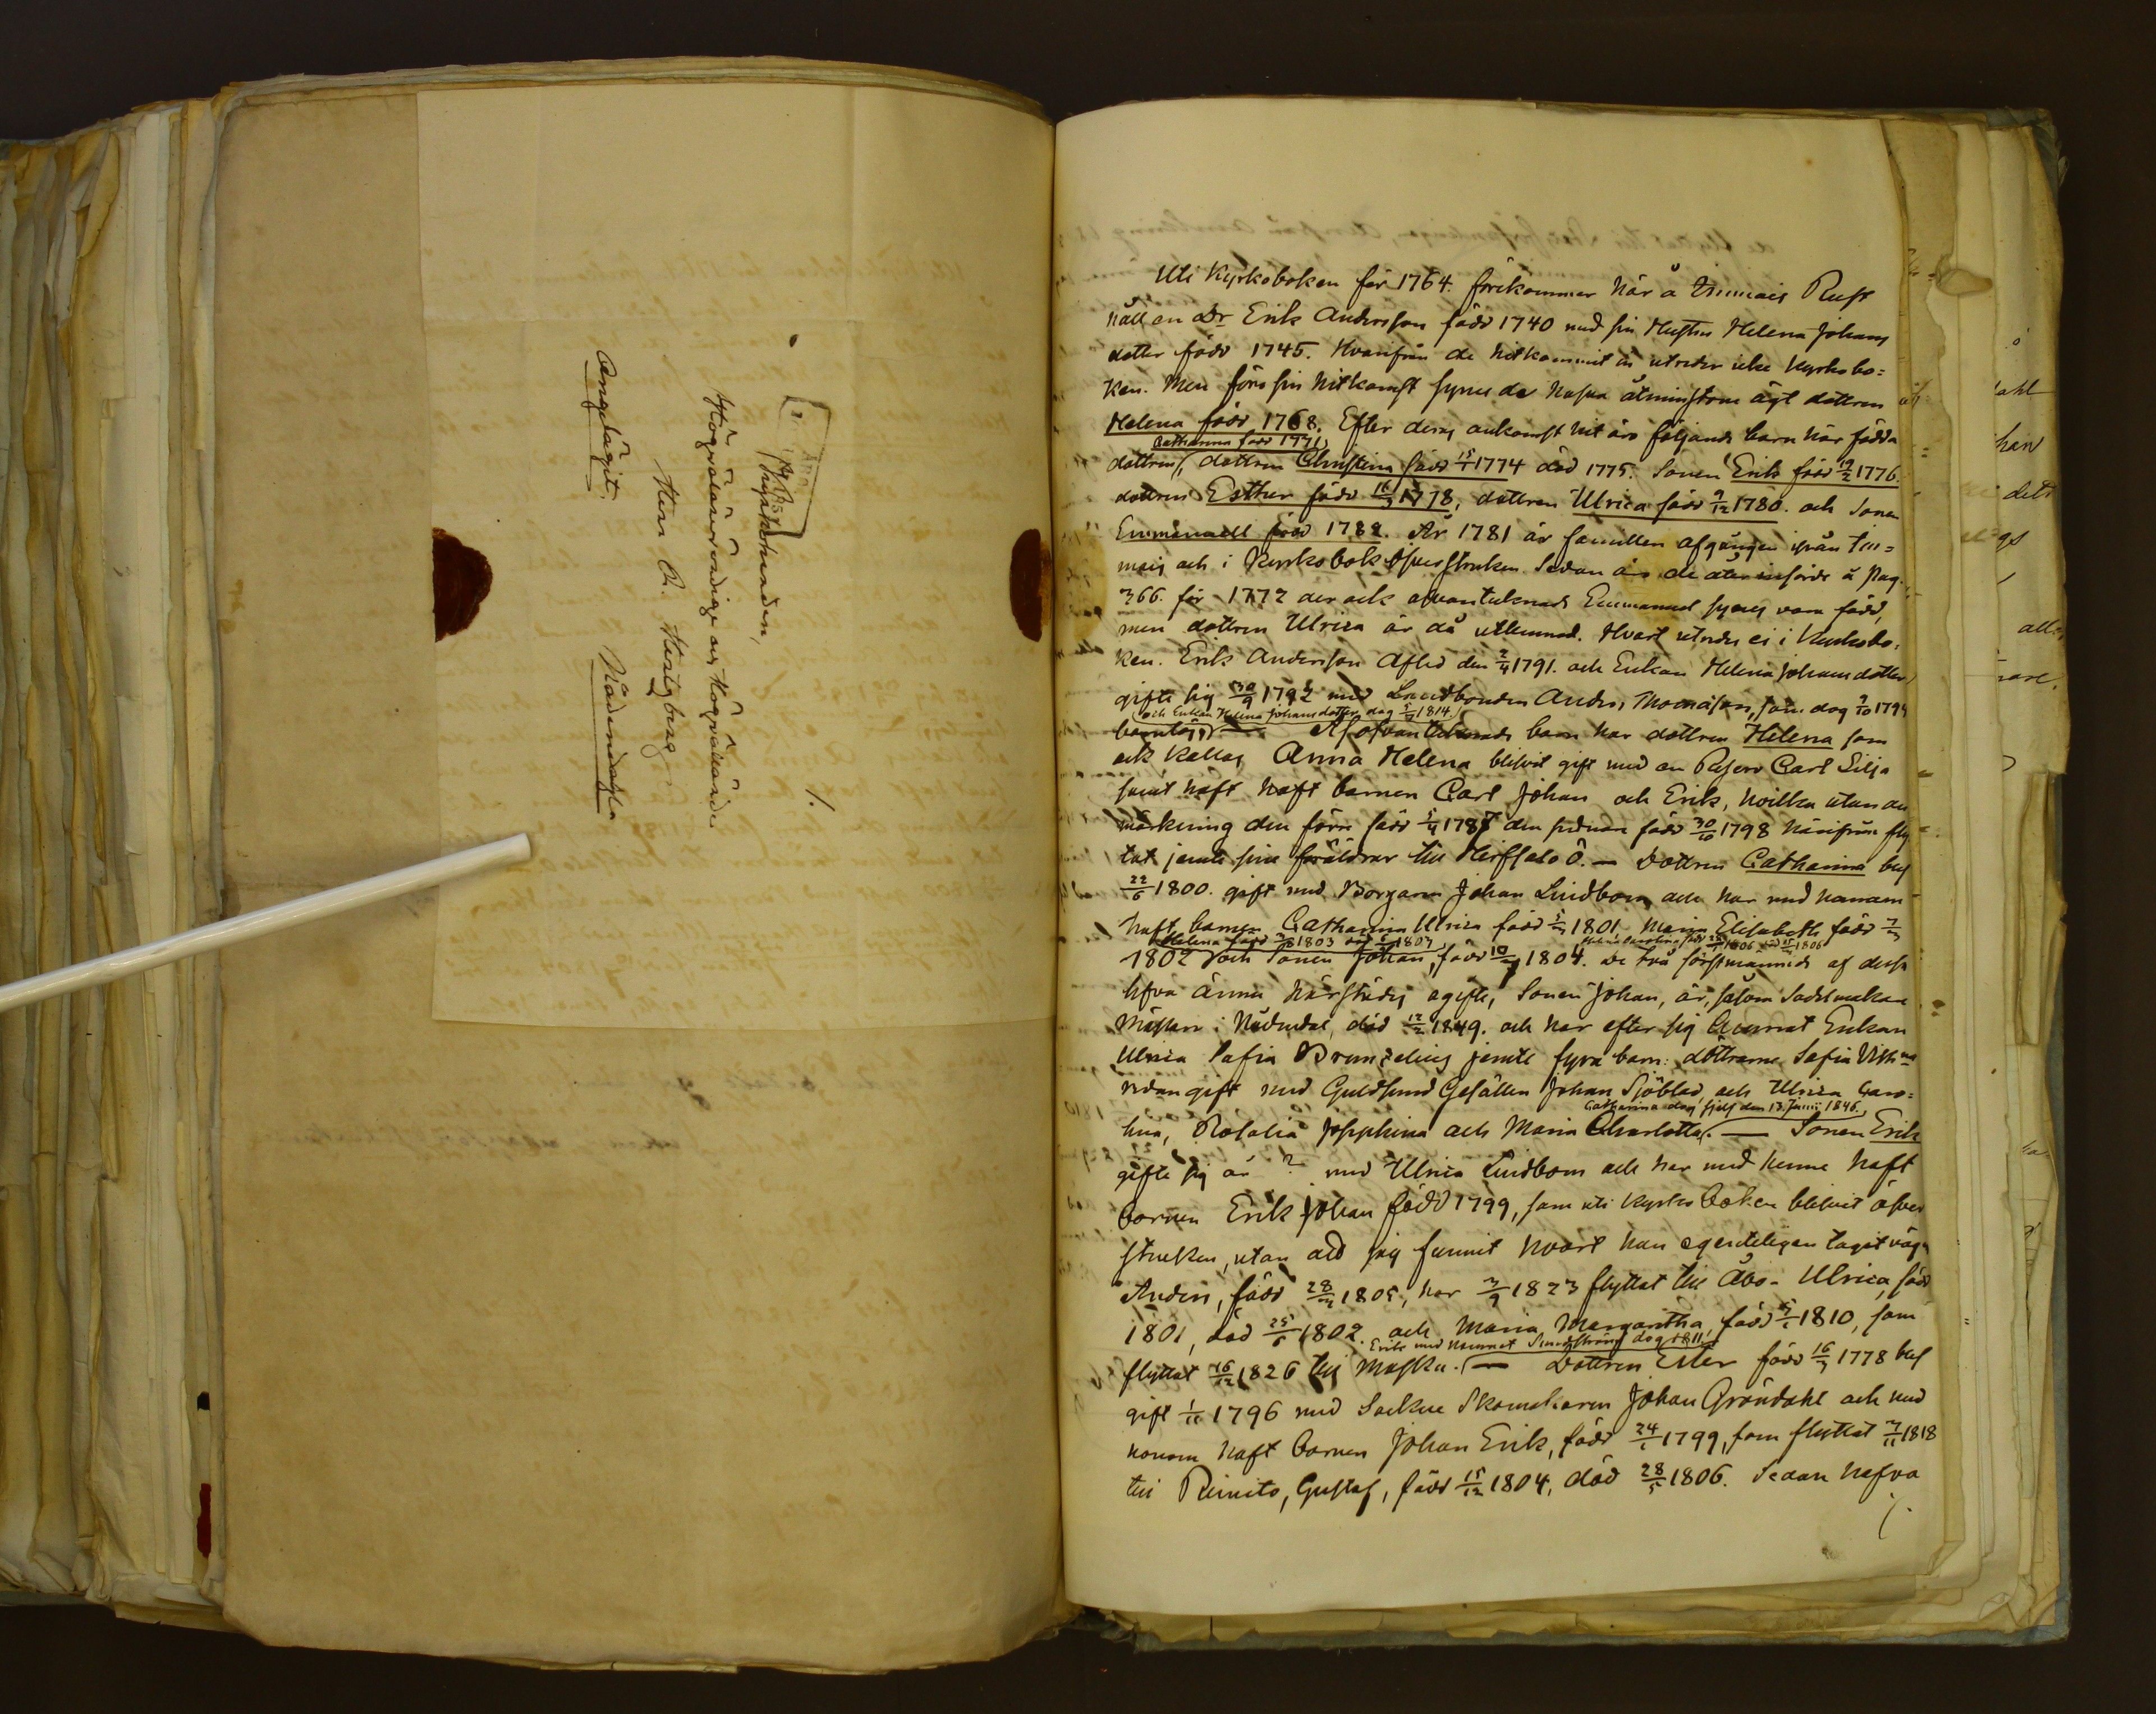 Högvälärevördige och Högvälärde
Herr A. Hertzberg
Angelägit. Nådendahl
1.
Uti Kyrkoboken för 1764. förekommer här å Immais Rust
håll en Dr Erik Andersson född 1740 med sin Hustru Helena Johans
dotter född 1745. Hvarifrån de hitkommit utreder icke Kyrkobo=
ken. Men före sin hitkomst synes de hafva åtminstone ägt dottren
Helena född 1768. Efter deras ankomst hit äro följande barn här födda
Catharina född 1771,
dottren, dottren Christina född 15/1 1774 död 1775. Sonen Erik född 19/2 1776.
dottren Esther född 16/3 1778, dottren Ulrica född 9/12 1780. och Sonen
Emmanuell född 1782. År 1781 är familien afgången ifrån Im=
mais och i Kyrkobok öfverstruken. Sedan äro de åter införde å Pag.
366. för 1772 der ock ofvantecknade Emmanuel synes vara född,
men dottren Ulrica är då utlemnad. Hvart utredes ei i Kyrkobo=
ken. Erik Andersson afled den 2/4 1791. och Enkan Helena Johansdotter
gifte sig 30/9 1792 med Landbonden Anders Thomasson, som dog 9/10 1794
och Enkan Helena Johansdotter dog 1814.
barnlös, Af ofvantecknade barn har dottren Helena som
ock kallas Anna Helena blifvit gift med en Carl Lilja
samt haft haft barnen Carl Johan och Erik, hvilka utan an
märkning den förre född 5/4 1787 den sednare född 30/10 1798 härifrån flyt
tat jemte sine föräldrar till Ö. — Dottren Catharina blef
22/6 1800. gift med Borgaren Johan Lindbom och har med honom
haft barnen Catharina Ulrica född 1801, Maria Elisabeth född
Helena född 1803 död 1803, 1806 1806
1802 och Sonen Johan, född 1804. De två förstnämnde af dessa
lefva ännu härstädes ogifte, Sonen Johan, är, såsom Sadelmakare
Mästare i Nådendal, död 12/2 1849. och har efter sig lemnat Enkan
Ulrica Sofia Brunzelius jemte fyra barn: döttrarne Sofia
redan gift med Guldsmeds Gesällen Johan Sjöblad, och Ulrica Caro=
Catharina dog sjelf den 13. Junii 1846.
lina, Rosalia Josephina och Maria Charlotta. — Sonen Erik
gifte sig år ? med Ulrica Lindbom och har med henne haft
barnen Erik Johan född 1799, som uti Kyrko boken blifvit öfver
struken, utan att jag funnit hvart han egenteligen tagit vägen
Anders, född 28/ 1805, har 3/9 1823 flyttat till Åbo. Ulrica, född
1801, död 25/6 1802. och Maria Margaretha, född 1810, som
Erik med namnet dog 1811.
flyttat 16/12 1826 till Masku. — Dottren Ester född 16/3 1778 blef
gift 1/11 1796 med Sockne Skomakaren Johan Gröndahl och med
honom haft barnen Johan Erik, född 24/ 1799, som flyttat 3/11 1818
till Rimito, Gustaf, född 15/12 1804, död 28/5 1806. Sedan hafva